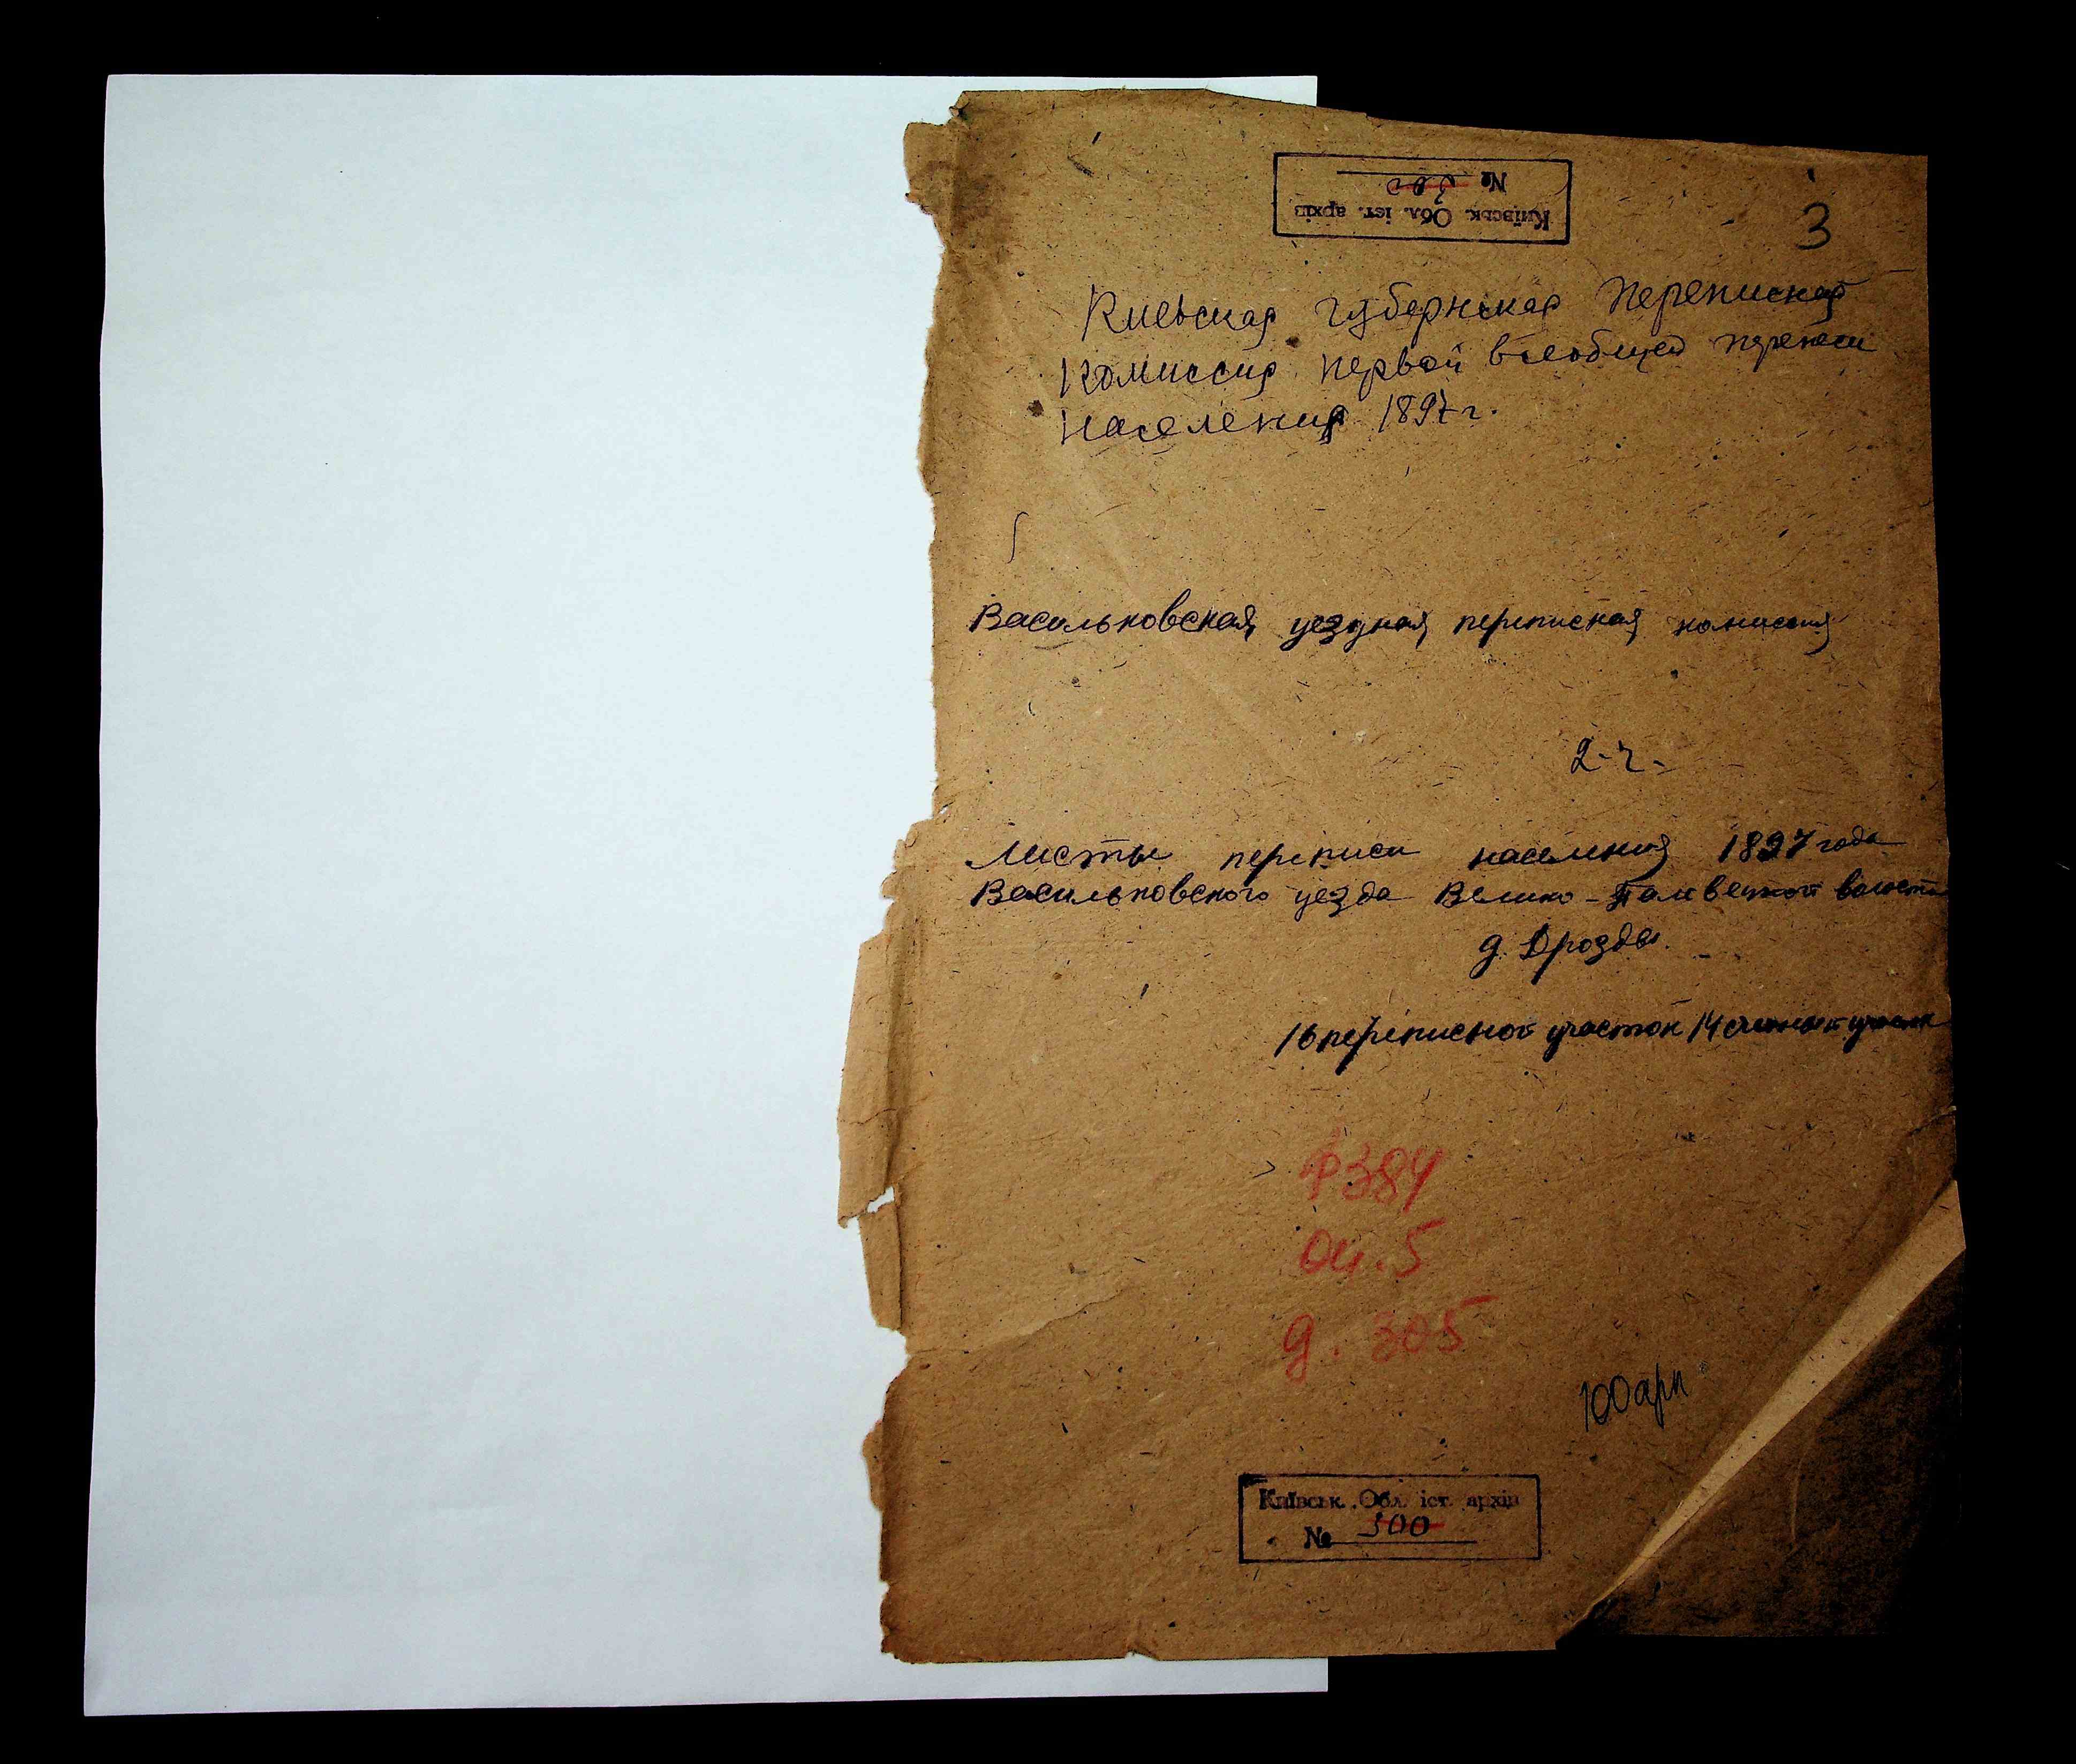 Київськ. Обл. іст. архів
№ 300
3
Киевская губернская переписная
комиссия первой всеобщей переписи
населения 1897 г.
Васильковская уездная переписная комиссия
2-ч.
Листы переписи населения 1897 года
Васильковского уезда Велико-Половецкой волости
д. Дрозды
16 переписной участок 14 счетный участок
Ф 384
оп. 5
д. 305
100 арк
Київськ. Обл. іст. архів
№ 300